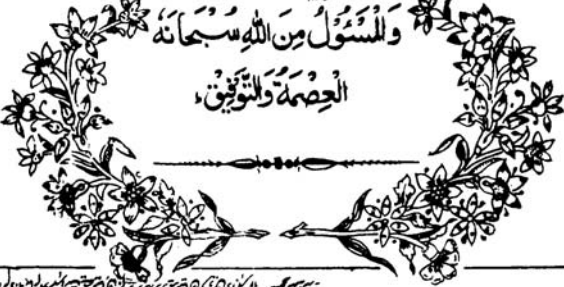 وَالْمَسْئُوْلُ مِنَ اللهِ سُبْحَانَهٗ
الْعِصْمَةُ وَالتَّوْفِيْقُ،